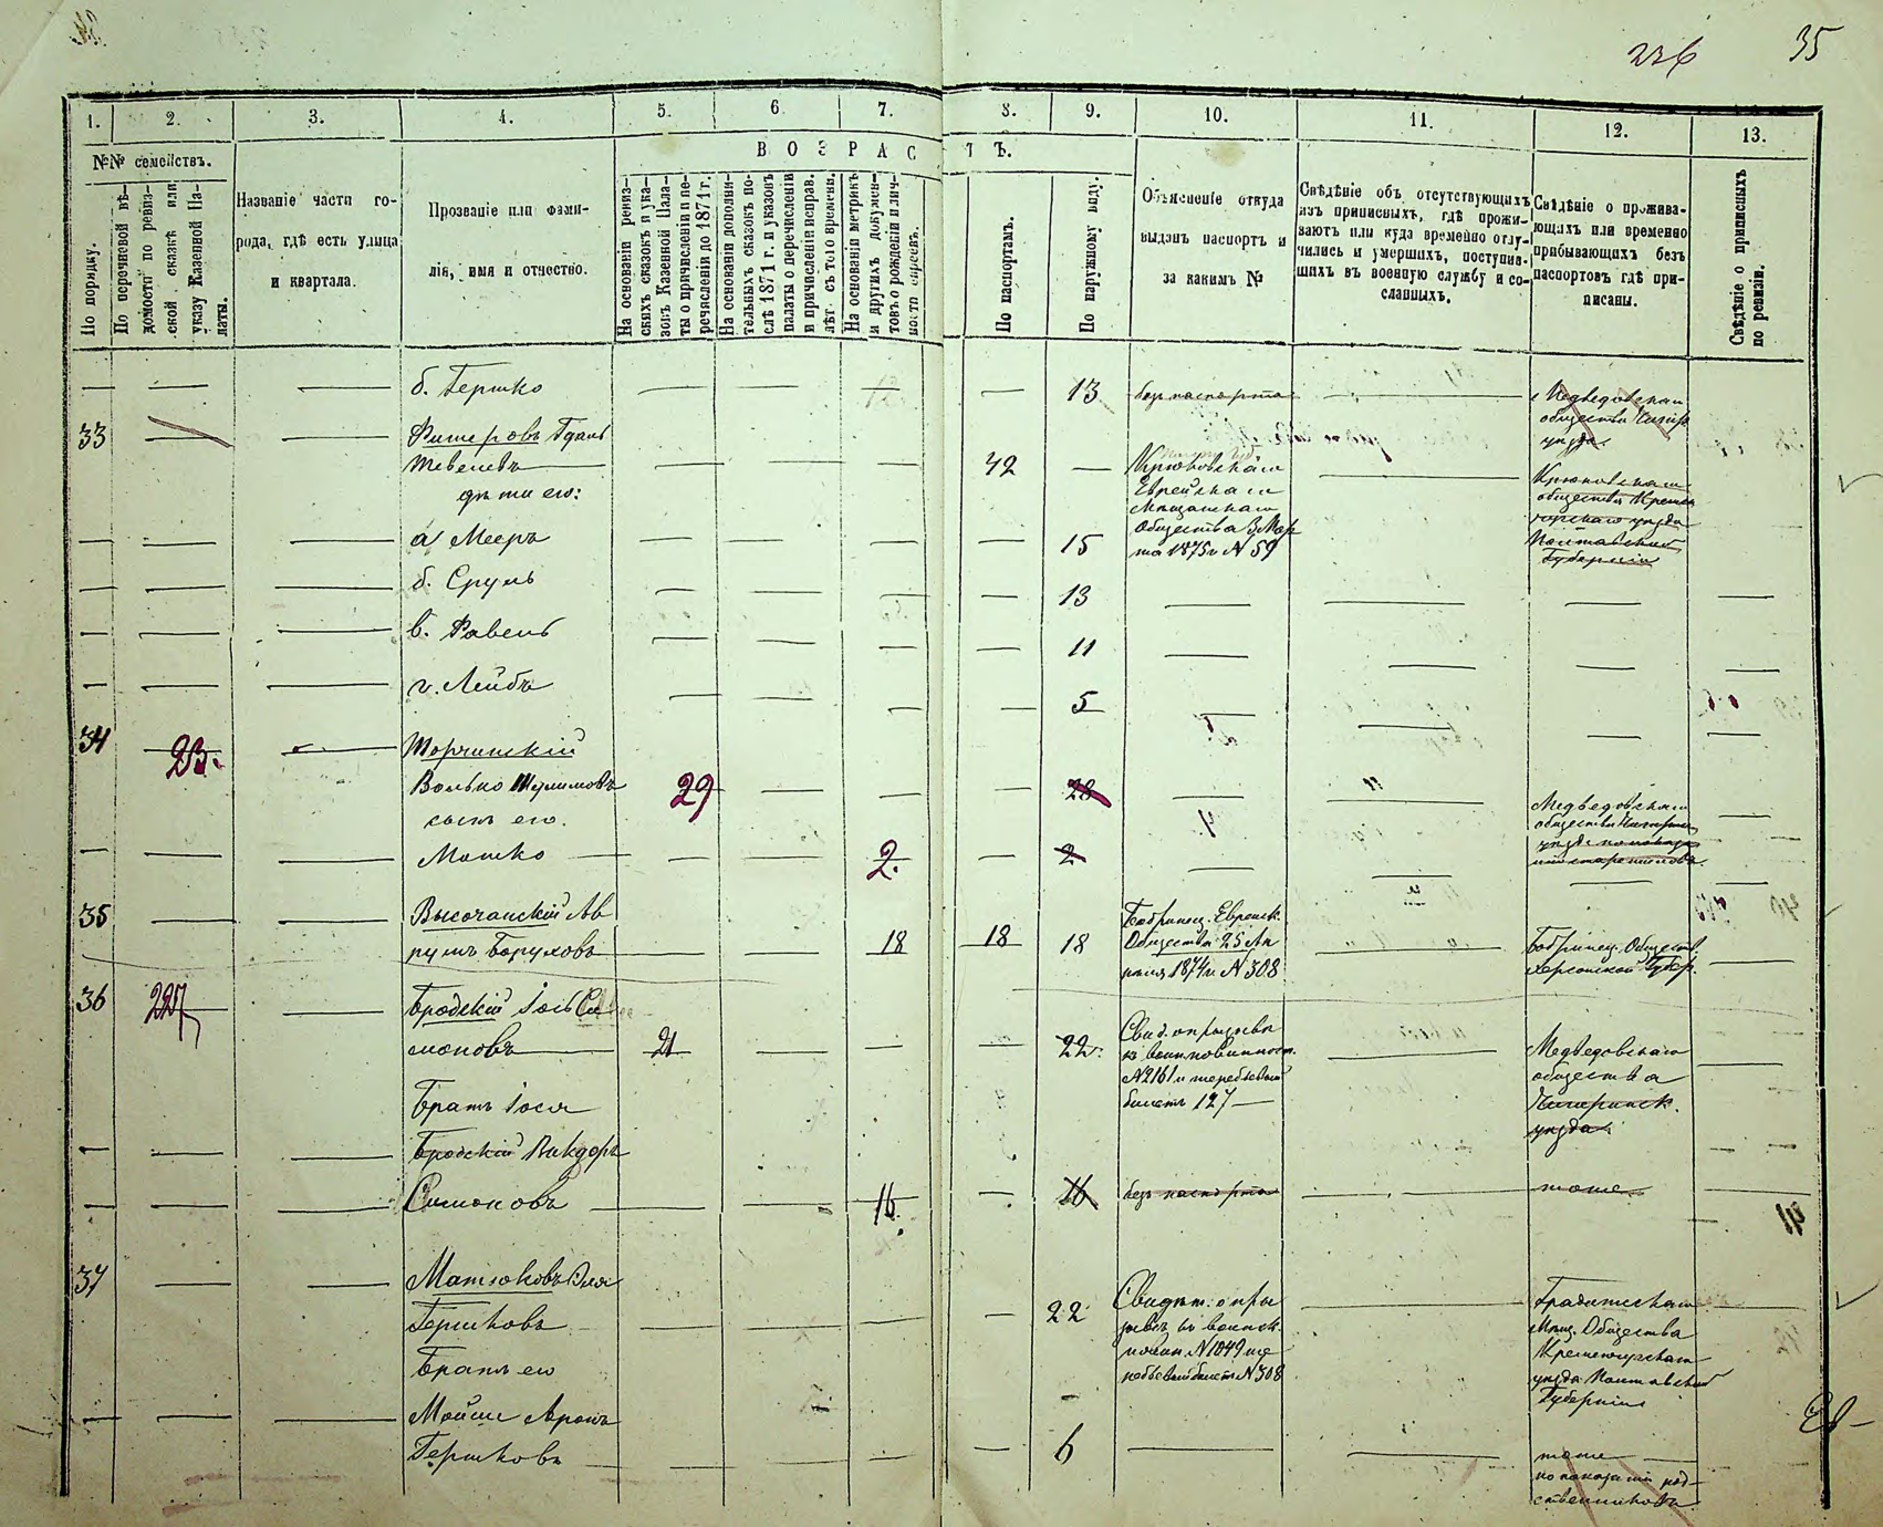 35
226
1.
2.
3.
4.
5.
6.
7.
8.
9.
10.
11.
12.
13.
ВОЗРАСТЪ.
№№ семействъ.
По порядку.
По перечневой вѣ-
домости по ревиз-
ской сказкѣ или
указу Казенной Па-
латы.
Названіе части го-
рода, гдѣ есть улица
и квартала.
Прозваніе или фами-
лія, имя и отчество.
На основаніи ревиз-
скихъ сказокъ и ука-
зовъ Казенной Пала-
ты о причисленіи и пе-
речисленіи до 1871 г.
На основаніи дополни-
тельныхъ сказокъ по-
слѣ 1871 г. и указовъ
палаты о перечисленіи
и причисленіи исправ.
лѣт. съ того времени.
На основаніи метрикъ
и другихъ докумен-
товъ о рожденіи и лич-
ности евреевъ.
По паспортамъ.
По наружному виду.
Объясненіе откуда
выданъ паспортъ и
за какимъ №
Свѣдѣніе объ отсутствующихъ
изъ приписныхъ, гдѣ прожи-
ваютъ или куда временно отлу-
чились и умершихъ, поступив-
шихъ въ военную службу и со-
сланныхъ.
Свѣдѣніе о прожива-
ющихъ или временно
прибывающихъ безъ
паспортовъ гдѣ при-
писаны.
Свѣдѣніе о приписныхъ
по ревизіи.
б. Гершко
13
безъ паспорта
Медведовскаго
общества Чигир
уезда
33
Тевелевъ
42
Крюковскаго
Еврейскаго
Мещанскаго
Общества 3 Мар
та 1875 г № 59
Крюковскаго
общества Кремен
чугскаго уезда
Полтавской
Губерніи
дѣти его:
а Мееръ
15
б. Сруль
13
в. Равель
11
г. Лейбъ
5
34
23.
Торчинскій
Волько Шулимовъ
29
28
Медведовскаго
общества
сынъ его.
Мошко
2.
2
35
Высочанскій Ав
румъ Боруховъ
18
18
18
Бобринец. Еврейск.
Общества 25 Ап
реля 1874 г № 308
Бобринец. Обществ
Херсонской Губер.
36
227
Бродскій Іось Си
моновъ
21
22.
Свид. о призыве
к воин. повинност.
№ 2161 и жеребьевый
билетъ 127
Медведовскаго
общества
Чигиринск.
уезда
Братъ Іося
Бродскій Викдоръ
Симоновъ
16.
16
безъ паспорта
тоже
37
Матюковъ Эля
Гершковъ
22
Свидет. о при
зыве къ воинск.
повин. № 1049 и же
ребьевый билет № 308
Градижскаго
Мещ. Общества
Кременчугскаго
уезда Полтавской
Губерніи
Братъ его
Мойше Аронъ
Гершковъ
6
тоже
по показанію род-
ственниковъ